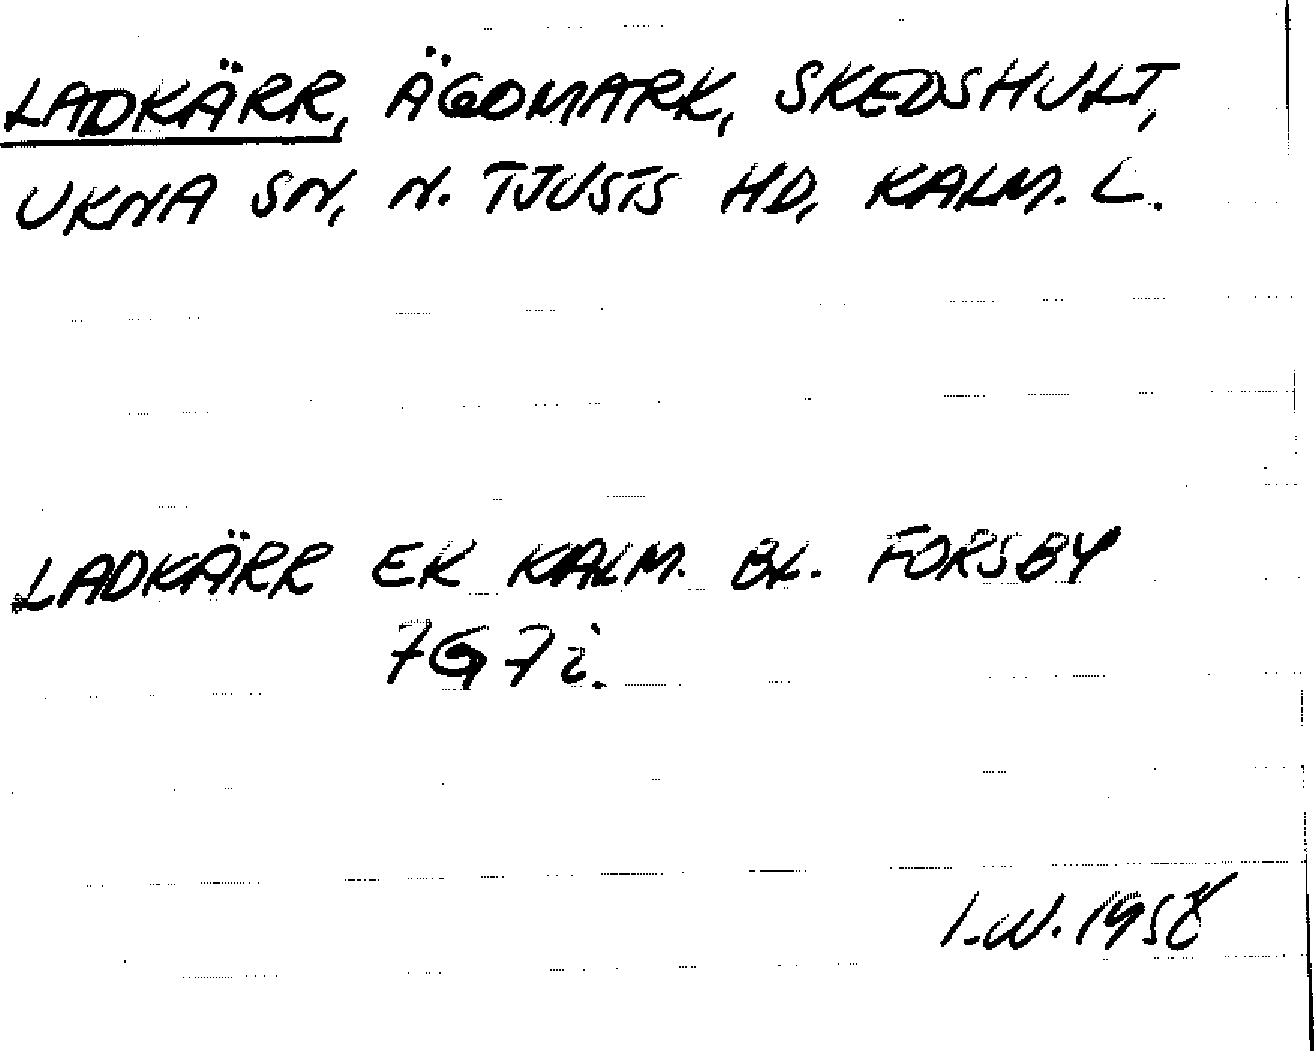 LADKÄRR, ÄGOMARK, SKEDSHULT,
UKNA SN, N. TJUSTS HD, KALM. L.
LADKÄRR EK KALM. BL. FORSBY
7G7i.
I.W. 1958